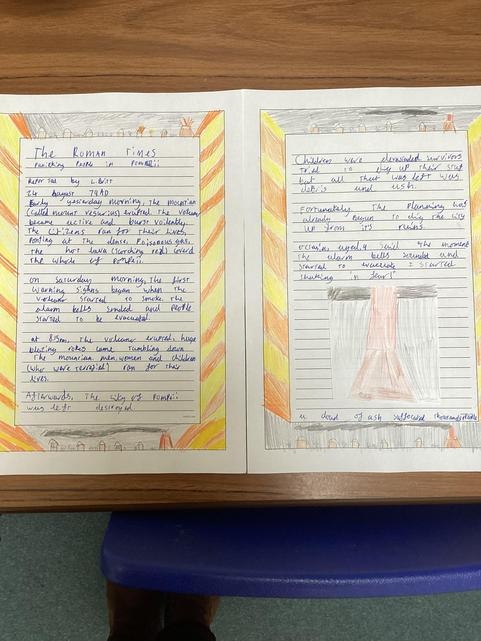 The Roman Times
Panicking People in Pompeii
Reported by L.Britt
24 August 79AD
Early yesterday morning, the mountian
(called mount vesuvius) erutted. The volcano
became active and burst violently.
The citizens ran for their lives,
at the dense, Poisonous gas,
the hot lava (scorching red) coverd
the whole of Pompeii.
on Saturday morning, the first
warning signs began when the
volcano started to smoke. the
alarm bells sonded and people
started to be evacuated.
at 8:5am, The volcano erupted, huge
blazing rokes came tumbling down
the mountian. men, women and children
(who were terrafied) ran for their
lives.
Afterwards, the city of Pompeii
was left
Children were survivors
tried to up their stuf
but all that was left was
debris and ash.
Fortunatley The Planning has
already begun to dig the city
up from it's ruins.
aged 9 said "the moment
the alarm bells soundet and
started to I started
shaking in fear!"
a cloud of ash suffocated thousands of